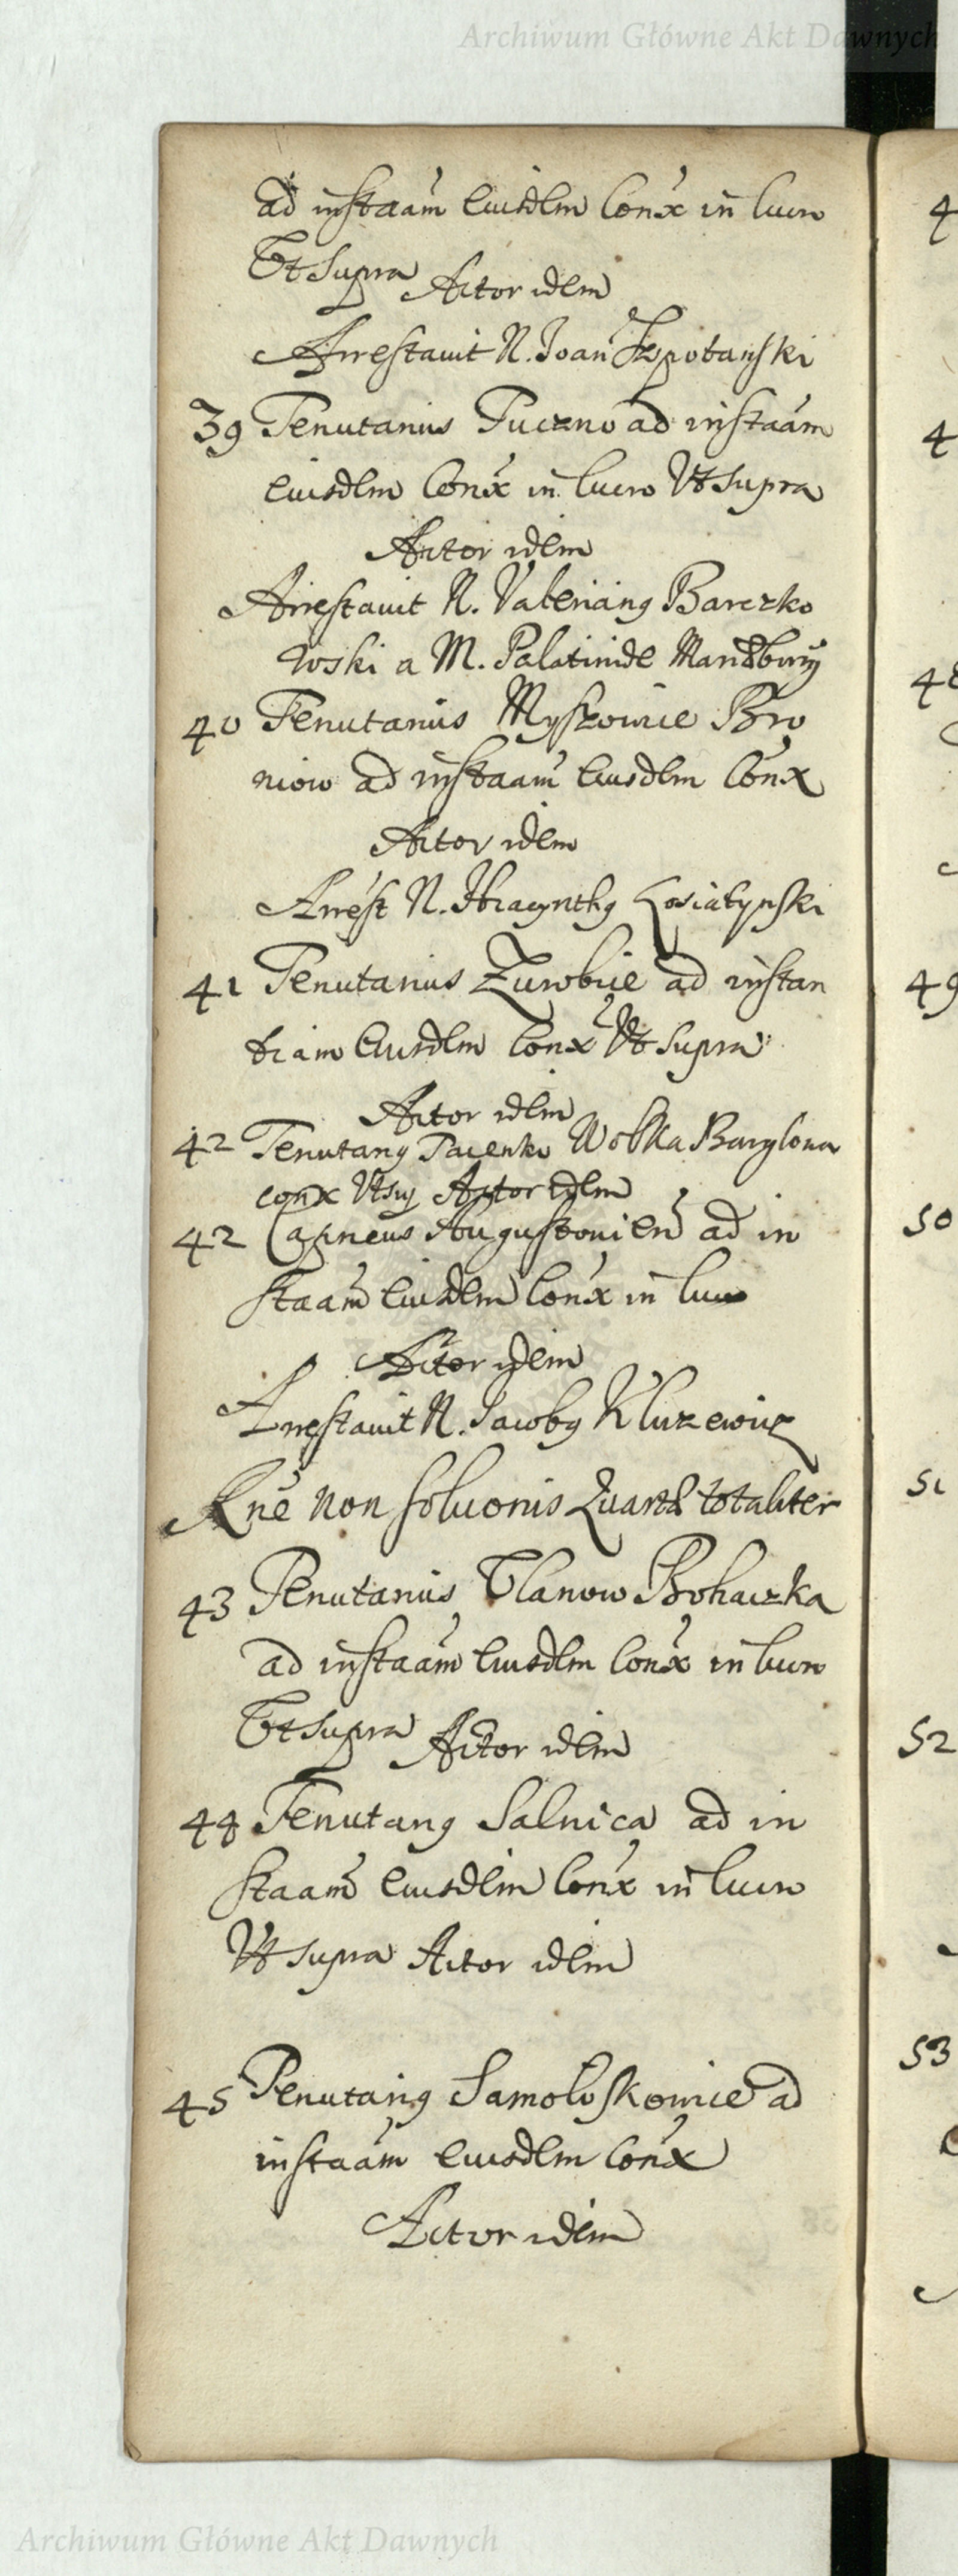 Archiwum Główne Akt Dawnych
ad instaam eiusdem Conx in lucro
Vt supra Actor idem
Arrestauit N. Joan
39 Tenutarius Tuczno ad instaam
eiusdem Conx in lucro Vt supra
Actor idem
Arrestauit N. Valeriang Barczko
wski a M. Palatinide
40 Tenutarius Myszowie Bro
niow ad instaam eiusdem Conx
Actor idem
Arrest N. Hiacynthg Losiatynski
41 Tenutarius Zurobice ad instan
tiam eiusdem Conx Vt supra
Actor idem
42 Tenutarg Pacenko Wolka Barylona
conx Vtsu Actor idem
42 Capneus Augustouien ad in
staam eiusdem Conx in lucro
Actor idem
Arrestauit N. Jacobg Kluzewicz
Rne non soluonis Quarta totaliter
43 Tenutarius Vlanow Bohaczka
ad instaam eiusdem Conx in lucro
Vt supra Actor idem
44 Tenutarg Salnica ad in
staam eiusdem Conx in lucro
Vt supra Actor idem
45 Tenutarg Samoloskowice ad
instaam eiusdem Conx
Actor idem
4
4
48
49
50
51
52
53
Archiwum Główne Akt Dawnych